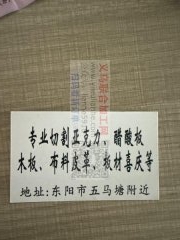 专业切割亚克力、醋酸板
木板、布料皮革、板材喜庆等
地址:东阳市五马塘附近